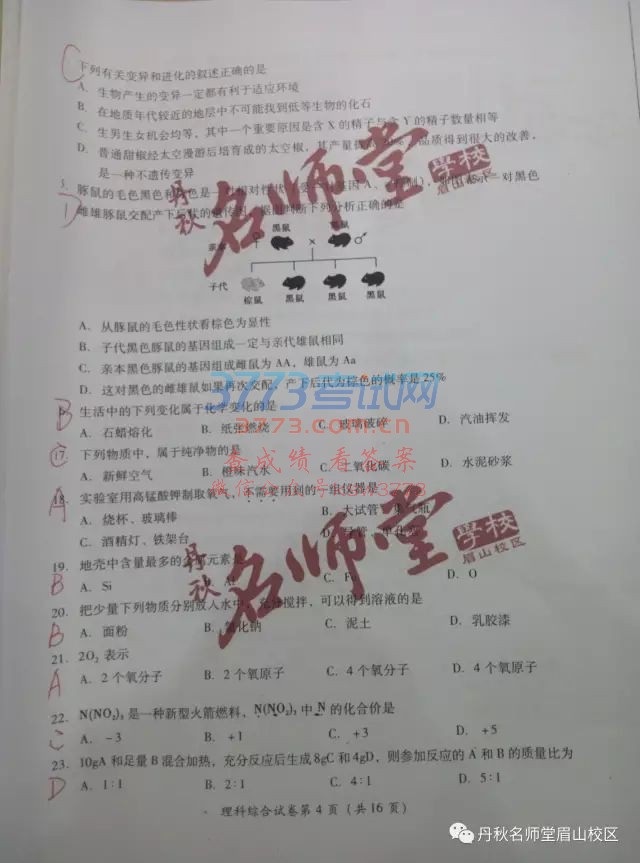 C
下列有关变异和进化的叙述正确的是
A. 生物产生的变异一定都有利于适应环境
B. 在地质年代较近的地层中不可能找到低等生物的化石
C. 生男生女机会均等，其中一个重要原因是含 X 的精子与含 Y 的精子数量相等
D. 普通甜椒经太空漫游后培育成的太空椒，其产量提高 品质得到很大的改善，
是一种不遗传变异
5. 豚鼠的毛色黑色和 色是一对相对性状 基因 A、 对黑色
D
雌雄豚鼠交配产下后代的遗传 下列分析正确的是
黑鼠 黑鼠
亲 ♀ × ♂
子代
棕鼠 黑鼠 黑鼠 黑鼠
A. 从豚鼠的毛色性状看棕色为显性
B. 子代黑色豚鼠的基因组成一定与亲代雄鼠相同
C. 亲本黑色豚鼠的基因组成雌鼠为 AA，雄鼠为 Aa
D. 这对黑色的雌雄鼠如果再次交配，产下后代为棕色的概率是 25%
3773考试网
B 生活中的下列变化属于化学变化的是
A. 石蜡熔化 B. 纸张燃烧 C. 玻璃破碎 D. 汽油挥发
3773.com
17. 下列物质中，属于纯净物的是
查成绩 看答案
A. 新鲜空气 B. 橙味汽水 C. 二氧化碳 D. 水泥砂浆
A
18. 实验室用高锰酸钾制取氧气，不需要用到的一组仪器是
A. 烧杯、玻璃棒 B. 大试管、集气瓶
C. 酒精灯、铁架台
19. 地壳中含量最多的 属元素是
B A. Si Al C. Fe D. O
20. 把少量下列物质分别放入水中，充分搅拌，可以得到溶液的是
B A. 面粉 B. 氯化钠 C. 泥土 D. 乳胶漆
21. 2O₂ 表示
A A. 2 个氧分子 B. 2 个氧原子 C. 4 个氧分子 D. 4 个氧原子
22. N(NO₂)₃ 是一种新型火箭燃料，N(NO₂)₃ 中 N 的化合价是
C A. -3 B. +1 C. +3 D. +5
23. 10gA 和足量 B 混合加热，充分反应后生成 8gC 和 4gD，则参加反应的 A 和 B 的质量比为
D A. 1:1 B. 2:1 C. 4:1 D. 5:1
理科综合试卷第 4 页（共 16 页）
丹秋 名师堂 学校 眉山校区
丹秋 名师堂 学校 眉山校区
丹秋名师堂眉山校区